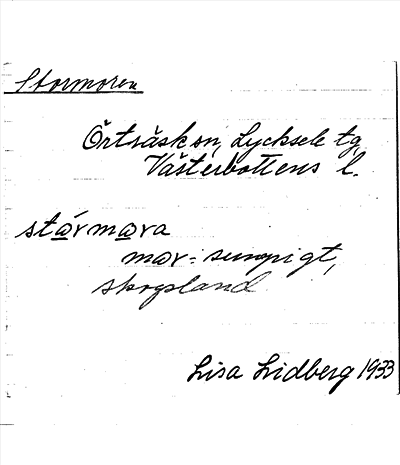 Stormoren
Örträsk sn, Lycksele tg,
Västerbottens l.
stårmara
mar: sumpigt,
skogsland
Lisa Lidberg 1933